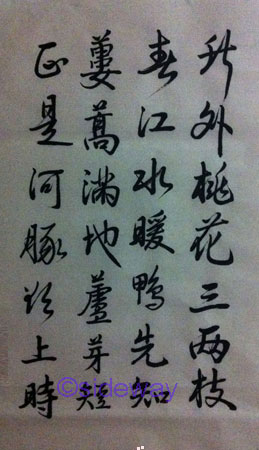 竹外桃花三兩枝
春江水暖鴨先知
蔞蒿滿地蘆芽短
正是河豚欲上時
©sideway